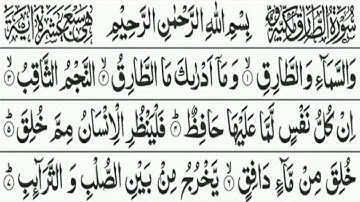 سُوْرَةُ الطَّارِقِ مَكِّيَّةٌ بِسْمِ اللهِ الرَّحْمٰنِ الرَّحِيْمِ هِيَ سَبْعَ عَشْرَةَ اٰيَةً
وَالسَّمَآءِ وَالطَّارِقِ ۙ۱ وَمَآ اَدْرٰىكَ مَا الطَّارِقُ ۙ۲ النَّجْمُ الثَّاقِبُ ۙ۳
اِنْ كُلُّ نَفْسٍ لَّمَّا عَلَيْهَا حَافِظٌ ؕ۴ فَلْيَنْظُرِ الْاِنْسَانُ مِمَّ خُلِقَ ؕ۵
خُلِقَ مِنْ مَّآءٍ دَافِقٍ ۙ۶ يَّخْرُجُ مِنْۢ بَيْنِ الصُّلْبِ وَ التَّرَآئِبِ ؕ۷